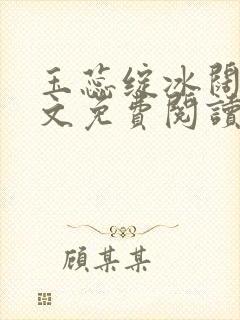 玉蕊绽冰阔
文免費閱讀
顧某某